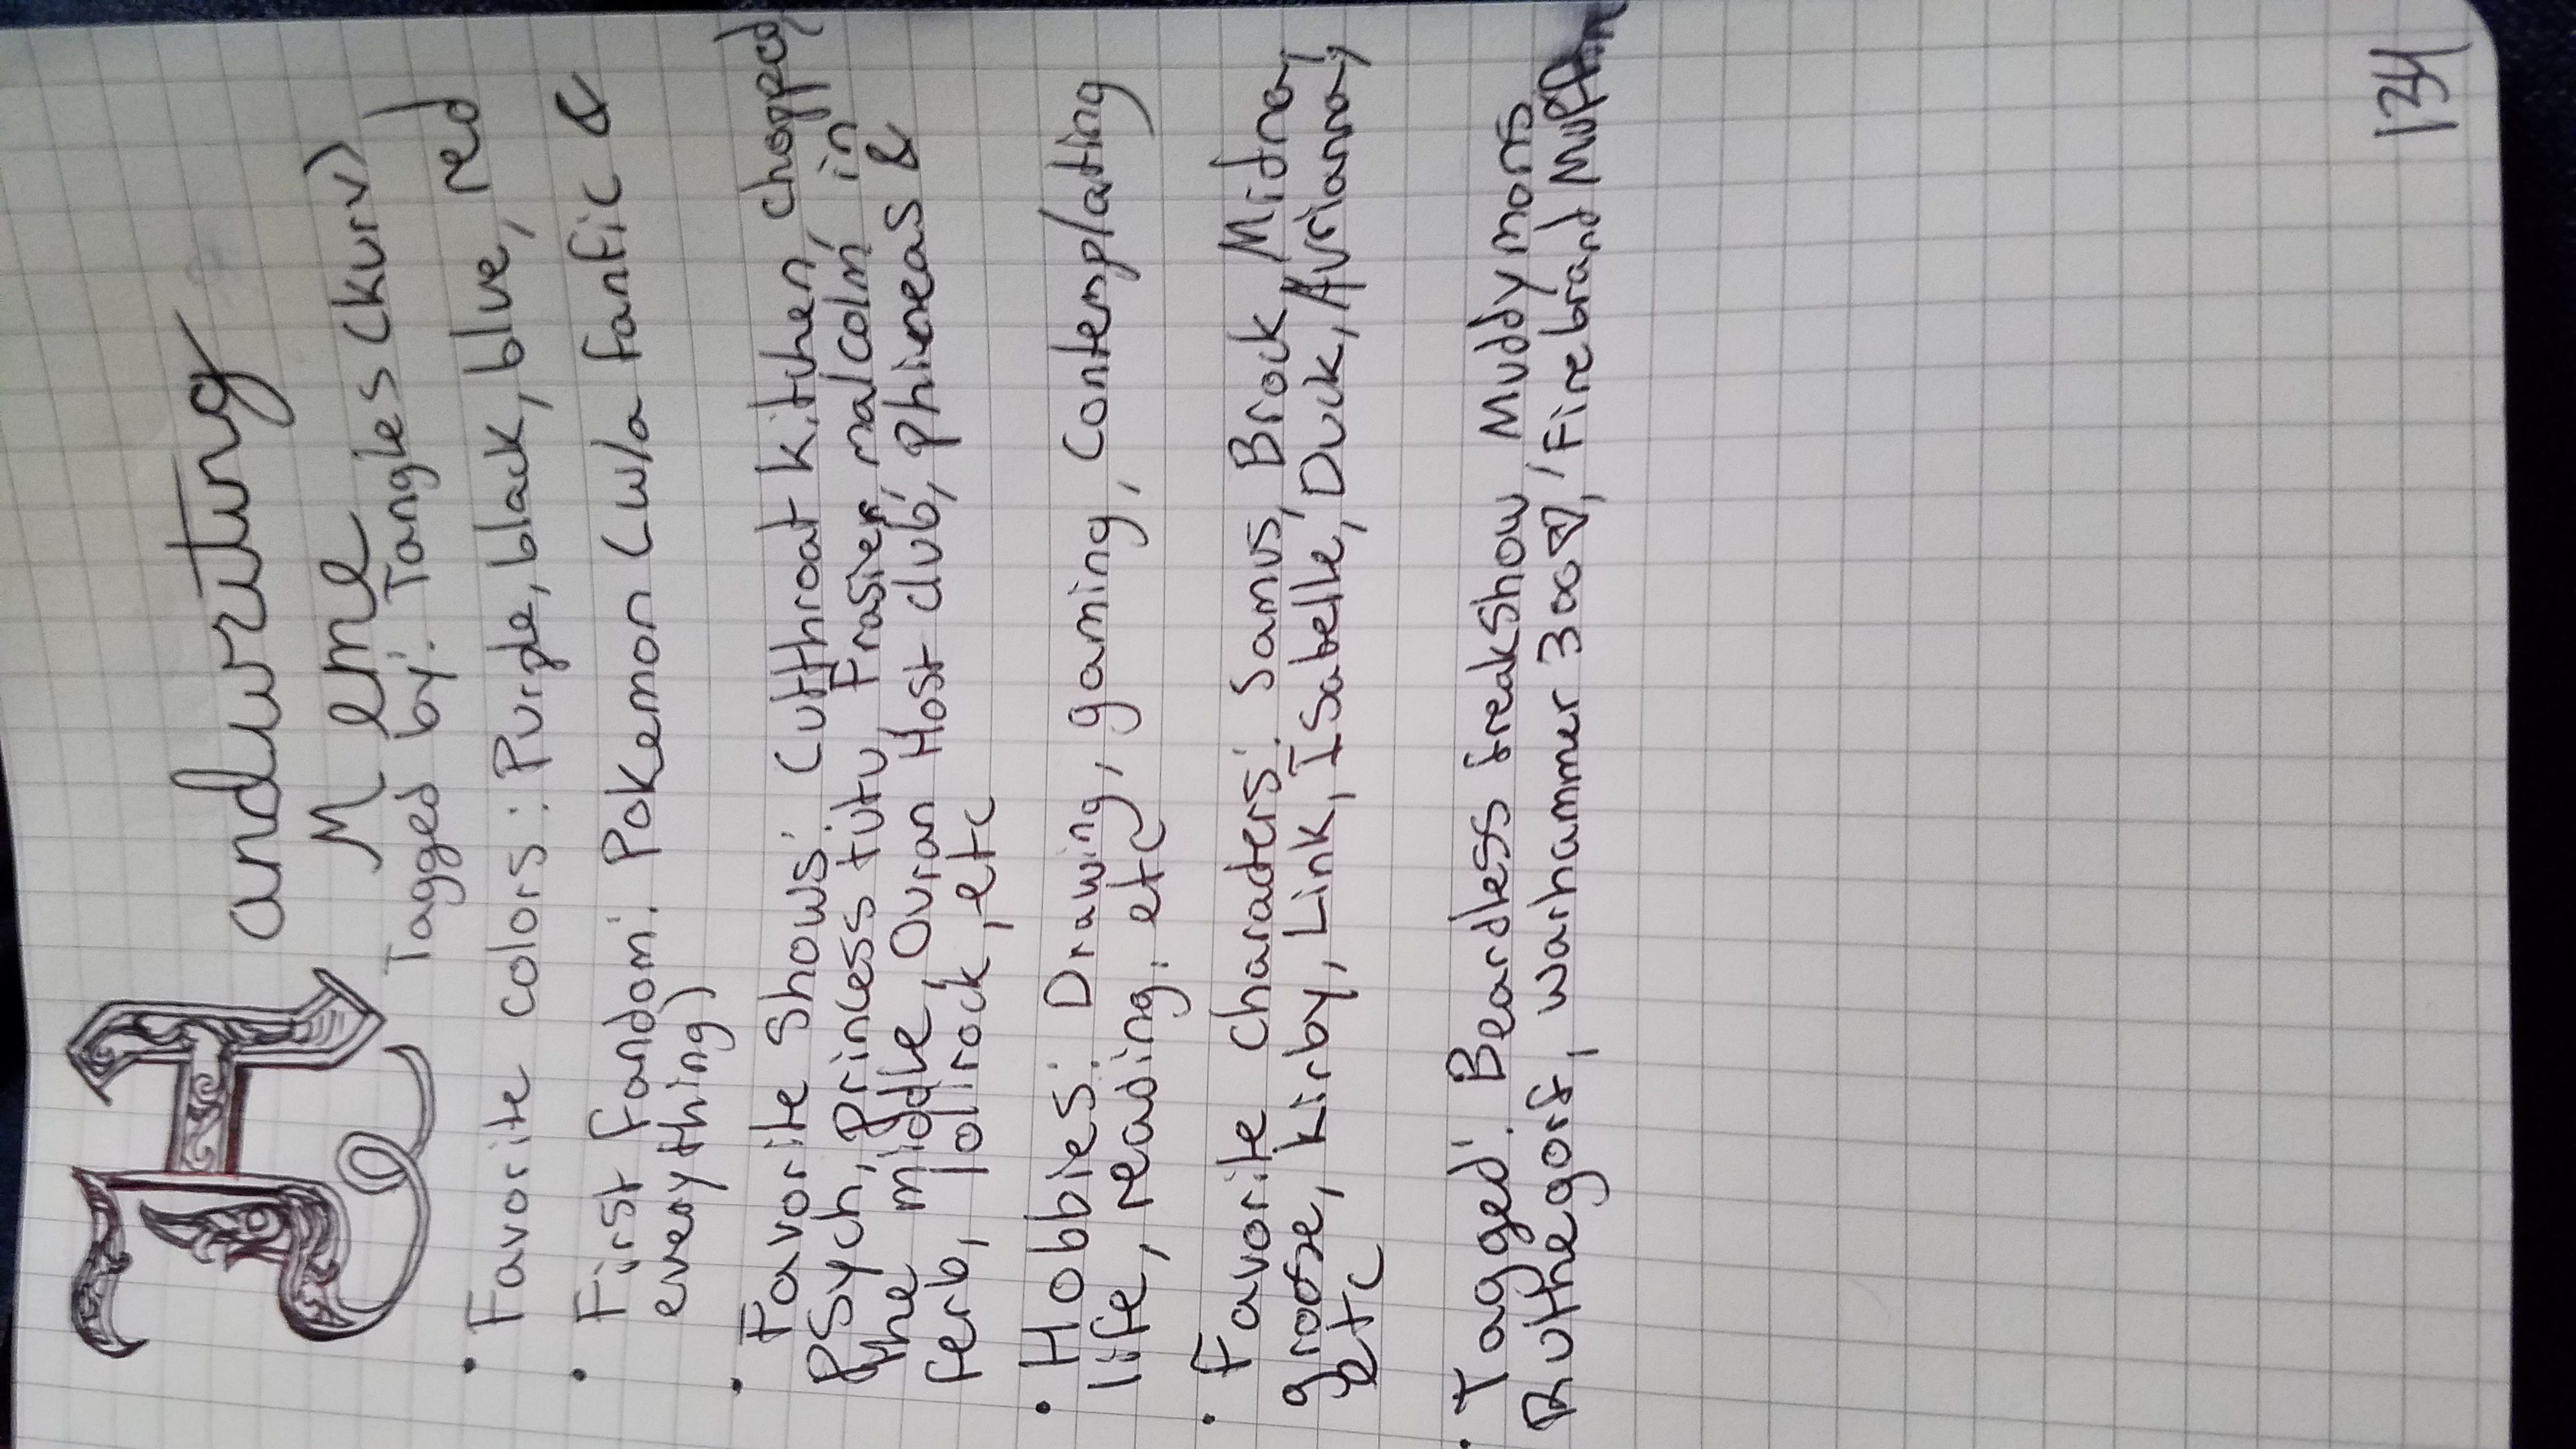 Handwriting
Meme
Tagged by: Tangles (kurv)
• Favorite colors: Purple, black, blue, red
• First fandom: Pokemon (w/a fanfic &
everything)
• Favorite shows: Cutthroat kitchen, chopped,
Psych, Princess tutu, Frasier, malcolm in
the middle, Ouran Host club, phieneas &
ferb, lolirock, etc
• Hobbies: Drawing, gaming, contemplating
life, reading, etc
• Favorite charaters: Samus, Brock, Midna,
groose, kirby, Link, Isabelle, Duck, Avrianna,
etc
• Tagged: Beardless freakshow, Muddymons
Ruthegorf, warhammer 300, Firebrand
134